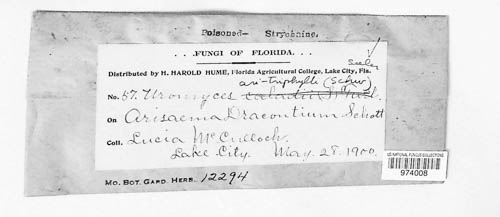 Poisoned- Strychnine.
...FUNGI OF FLORIDA...
Distributed by H. HAROLD HUME, Florida Agricultural College, Lake City, Fla.
ari-triphylli (Schw)
No. 57. Uromyces caladii
On Arisaema Dracontium Schott
Coll. Lucia McCulloch.
Lake City. May. 28. 1900.
MO. BOT. GARD. HERB. 12294
US NATIONAL FUNGUS COLLECTIONS
974008